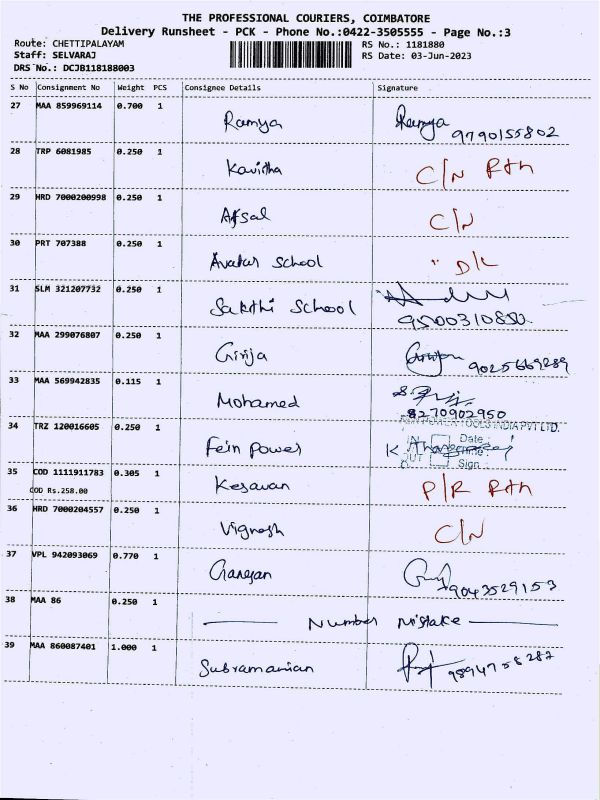 THE PROFESSIONAL COURIERS, COIMBATORE
Delivery Runsheet - PCK - Phone No.:0422-3505555 - Page No.:3
Route: CHETTIPALAYAM RS No.: 1181880
Staff: SELVARAJ RS Date: 03-Jun-2023
DRS No.: DCJB118188003
S No Consignment No Weight PCS Consignee Details Signature
27 MAA 859969114 0.700 1 Ramya Ramya 9790155802
28 TRP 6081985 0.250 1 Kavitha C/N Rth
29 HRD 7000200998 0.250 1 Afsal C/N
30 PRT 707388 0.250 1 Avatar School " D/L
31 SLM 321207732 0.250 1 Sakthi School
9500310850
32 MAA 299076807 0.250 1 Girija 9025669289
33 MAA 569942835 0.115 1 Mohamed
8270902950
34 TRZ 120016605 0.250 1 Fein power TOOLS INDIA PVT LTD.
IN Date
OUT Time
Sign
35 COD 1111911783 0.305 1 Kesavan P/R Rth
COD Rs.258.00
36 HRD 7000204557 0.250 1 Vignesh C/N
37 VPL 942093069 0.770 1 Ganesan 9043529153
38 MAA 86 0.250 1 Number Mistake
39 MAA 860087401 1.000 1 Subramanian 9894758282